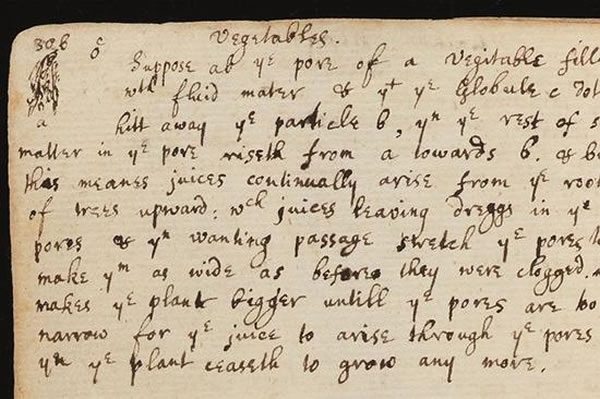 306 c Vegetables.
b Suppose ab yᵉ pore of a Vegitable fill
wᵗʰ fluid mater & yᵗ yᵉ Globule c dot
a hitt away yᵉ particle b, yⁿ yᵉ rest of s
matter in yᵉ pore riseth from a towards b. & b
this meanes juices continually arise from yᵉ roo
of trees upward: wᶜʰ juices leaving dreggs in yᵉ
pores & yⁿ wanting passage stretch yᵉ pores t
make yᵐ as wide as before they were clogged.
makes yᵉ plant bigger untill yᵉ pores are too
narrow for yᵉ juice to arise through yᵉ pores
yⁿ yᵉ plant ceaseth to grow any more.